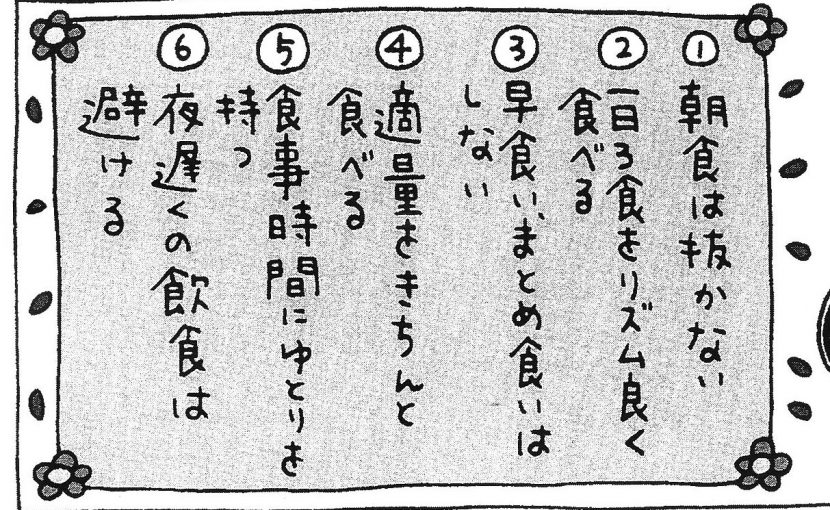 ①
朝食は抜かない
②
一日3食をリズム良く
食べる
③
早食い、まとめ食いは
しない
④
適量をきちんと
食べる
⑤
食事時間にゆとりを
持つ
⑥
夜遅くの飲食は
避ける